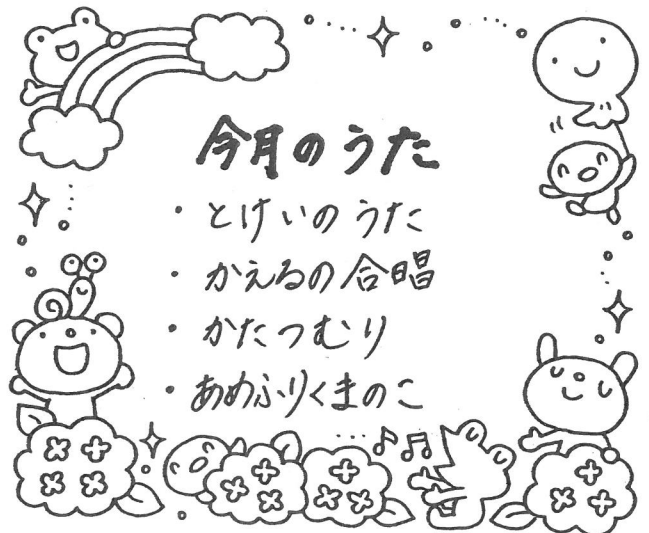 今月のうた
・とけいのうた
・かえるの合唱
・かたつむり
・あめふりくまのこ